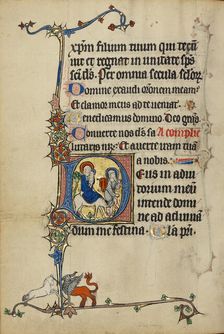 xp̄m filium tuum qui tecū
viuit et regnat in unitate sp̄s
sc̄i ds̄. Per omnia secula sclor̄.
Domine exaudi orōnem meam.
Et clamor meus ad te ueniat.
Benedicamus domino. Deo gr̄as.
Conuerte nos ds̄ sa A complie
lutaris nr̄. Et auerte iram tuā
a nobis.
Deus in adiu
torium meū
intende domi
ne ad adiuuan
dum me festina. Gl̄a pr̄i.